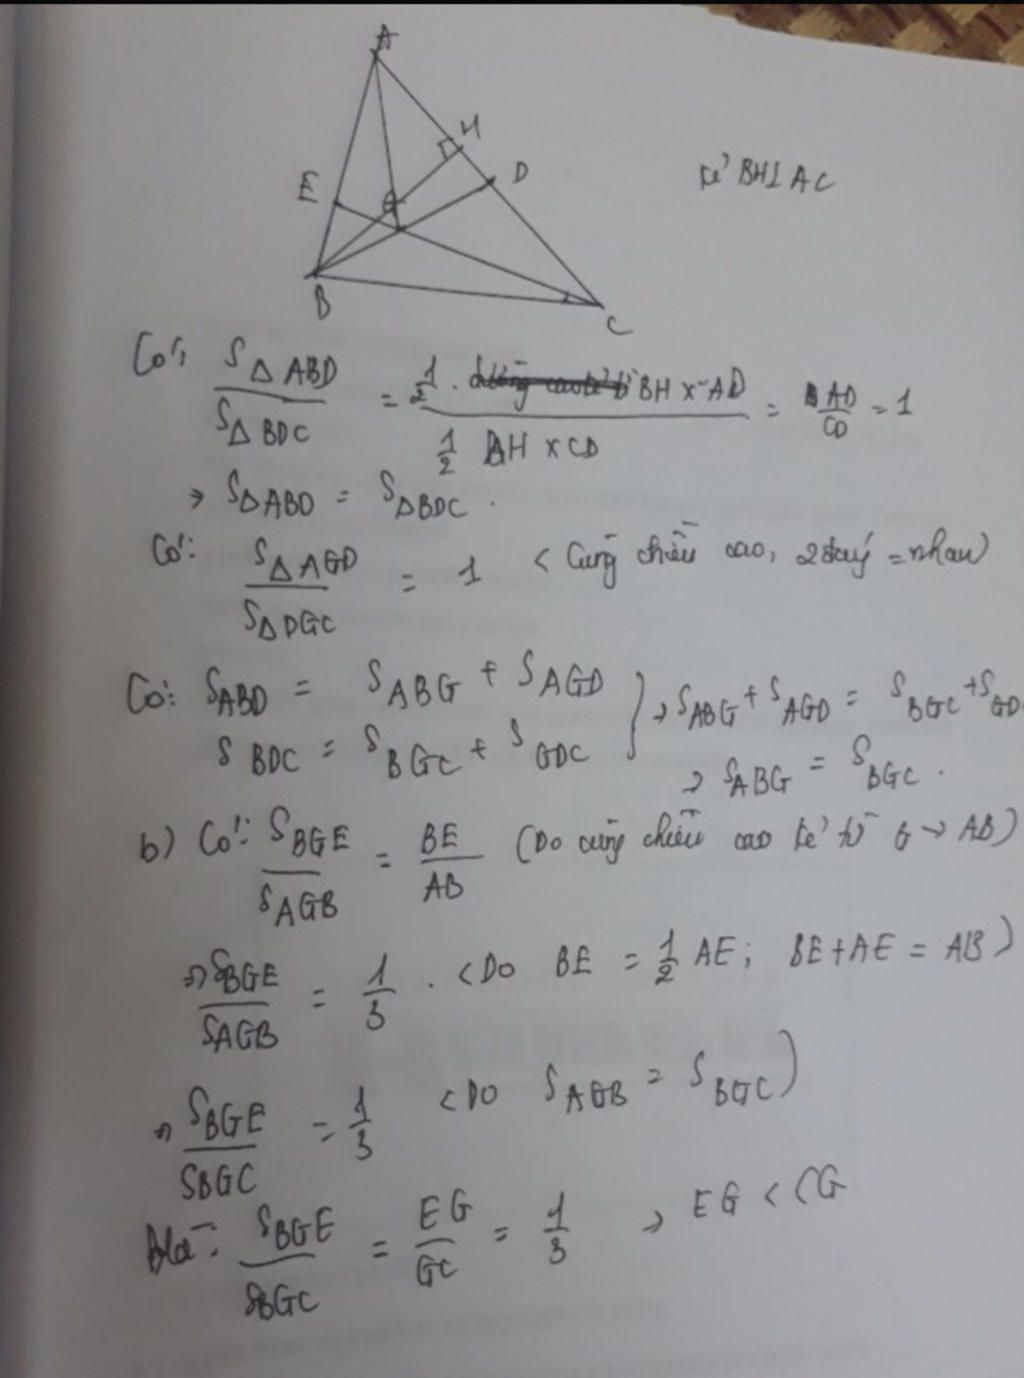 A
H
D
E
G
B
C
Kẻ BH⊥AC
Có: SΔABD / SΔBDC = 1/2 . BH x AD / 1/2 BH x CD = AD/CD = 1
→ SΔABD = SΔBDC .
Có: SΔAGD / SΔDGC = 1 (Cùng chiều cao, 2 đáy = nhau)
Có: SABD = SABG + SAGD } → SABG + SAGD = SBGC + SGD
SBDC = SBGC + SGDC → SABG = SBGC .
b) Có: SBGE / SAGB = BE / AB (Do cùng chiều cao kẻ từ G → AB)
=> SBGE / SAGB = 1/3 . (Do BE = 1/2 AE; BE + AE = AB)
=> SBGE / SBGC = 1/3 (Do SAGB = SBGC)
Mà: SBGE / SBGC = EG / GC = 1/3 → EG < CG